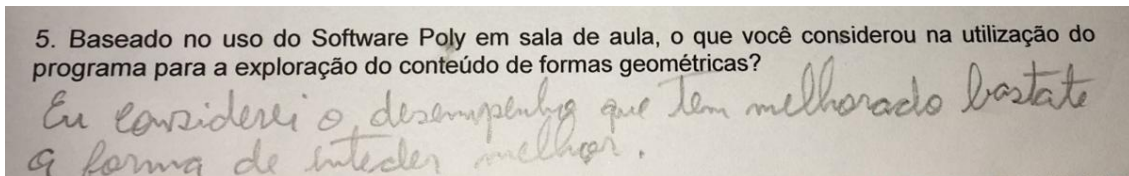 5. Baseado no uso do Software Poly em sala de aula, o que você considerou na utilização do
programa para a exploração do conteúdo de formas geométricas?
Eu considerei o desempenho que tem melhorado bastate
a forma de inteder melhor.